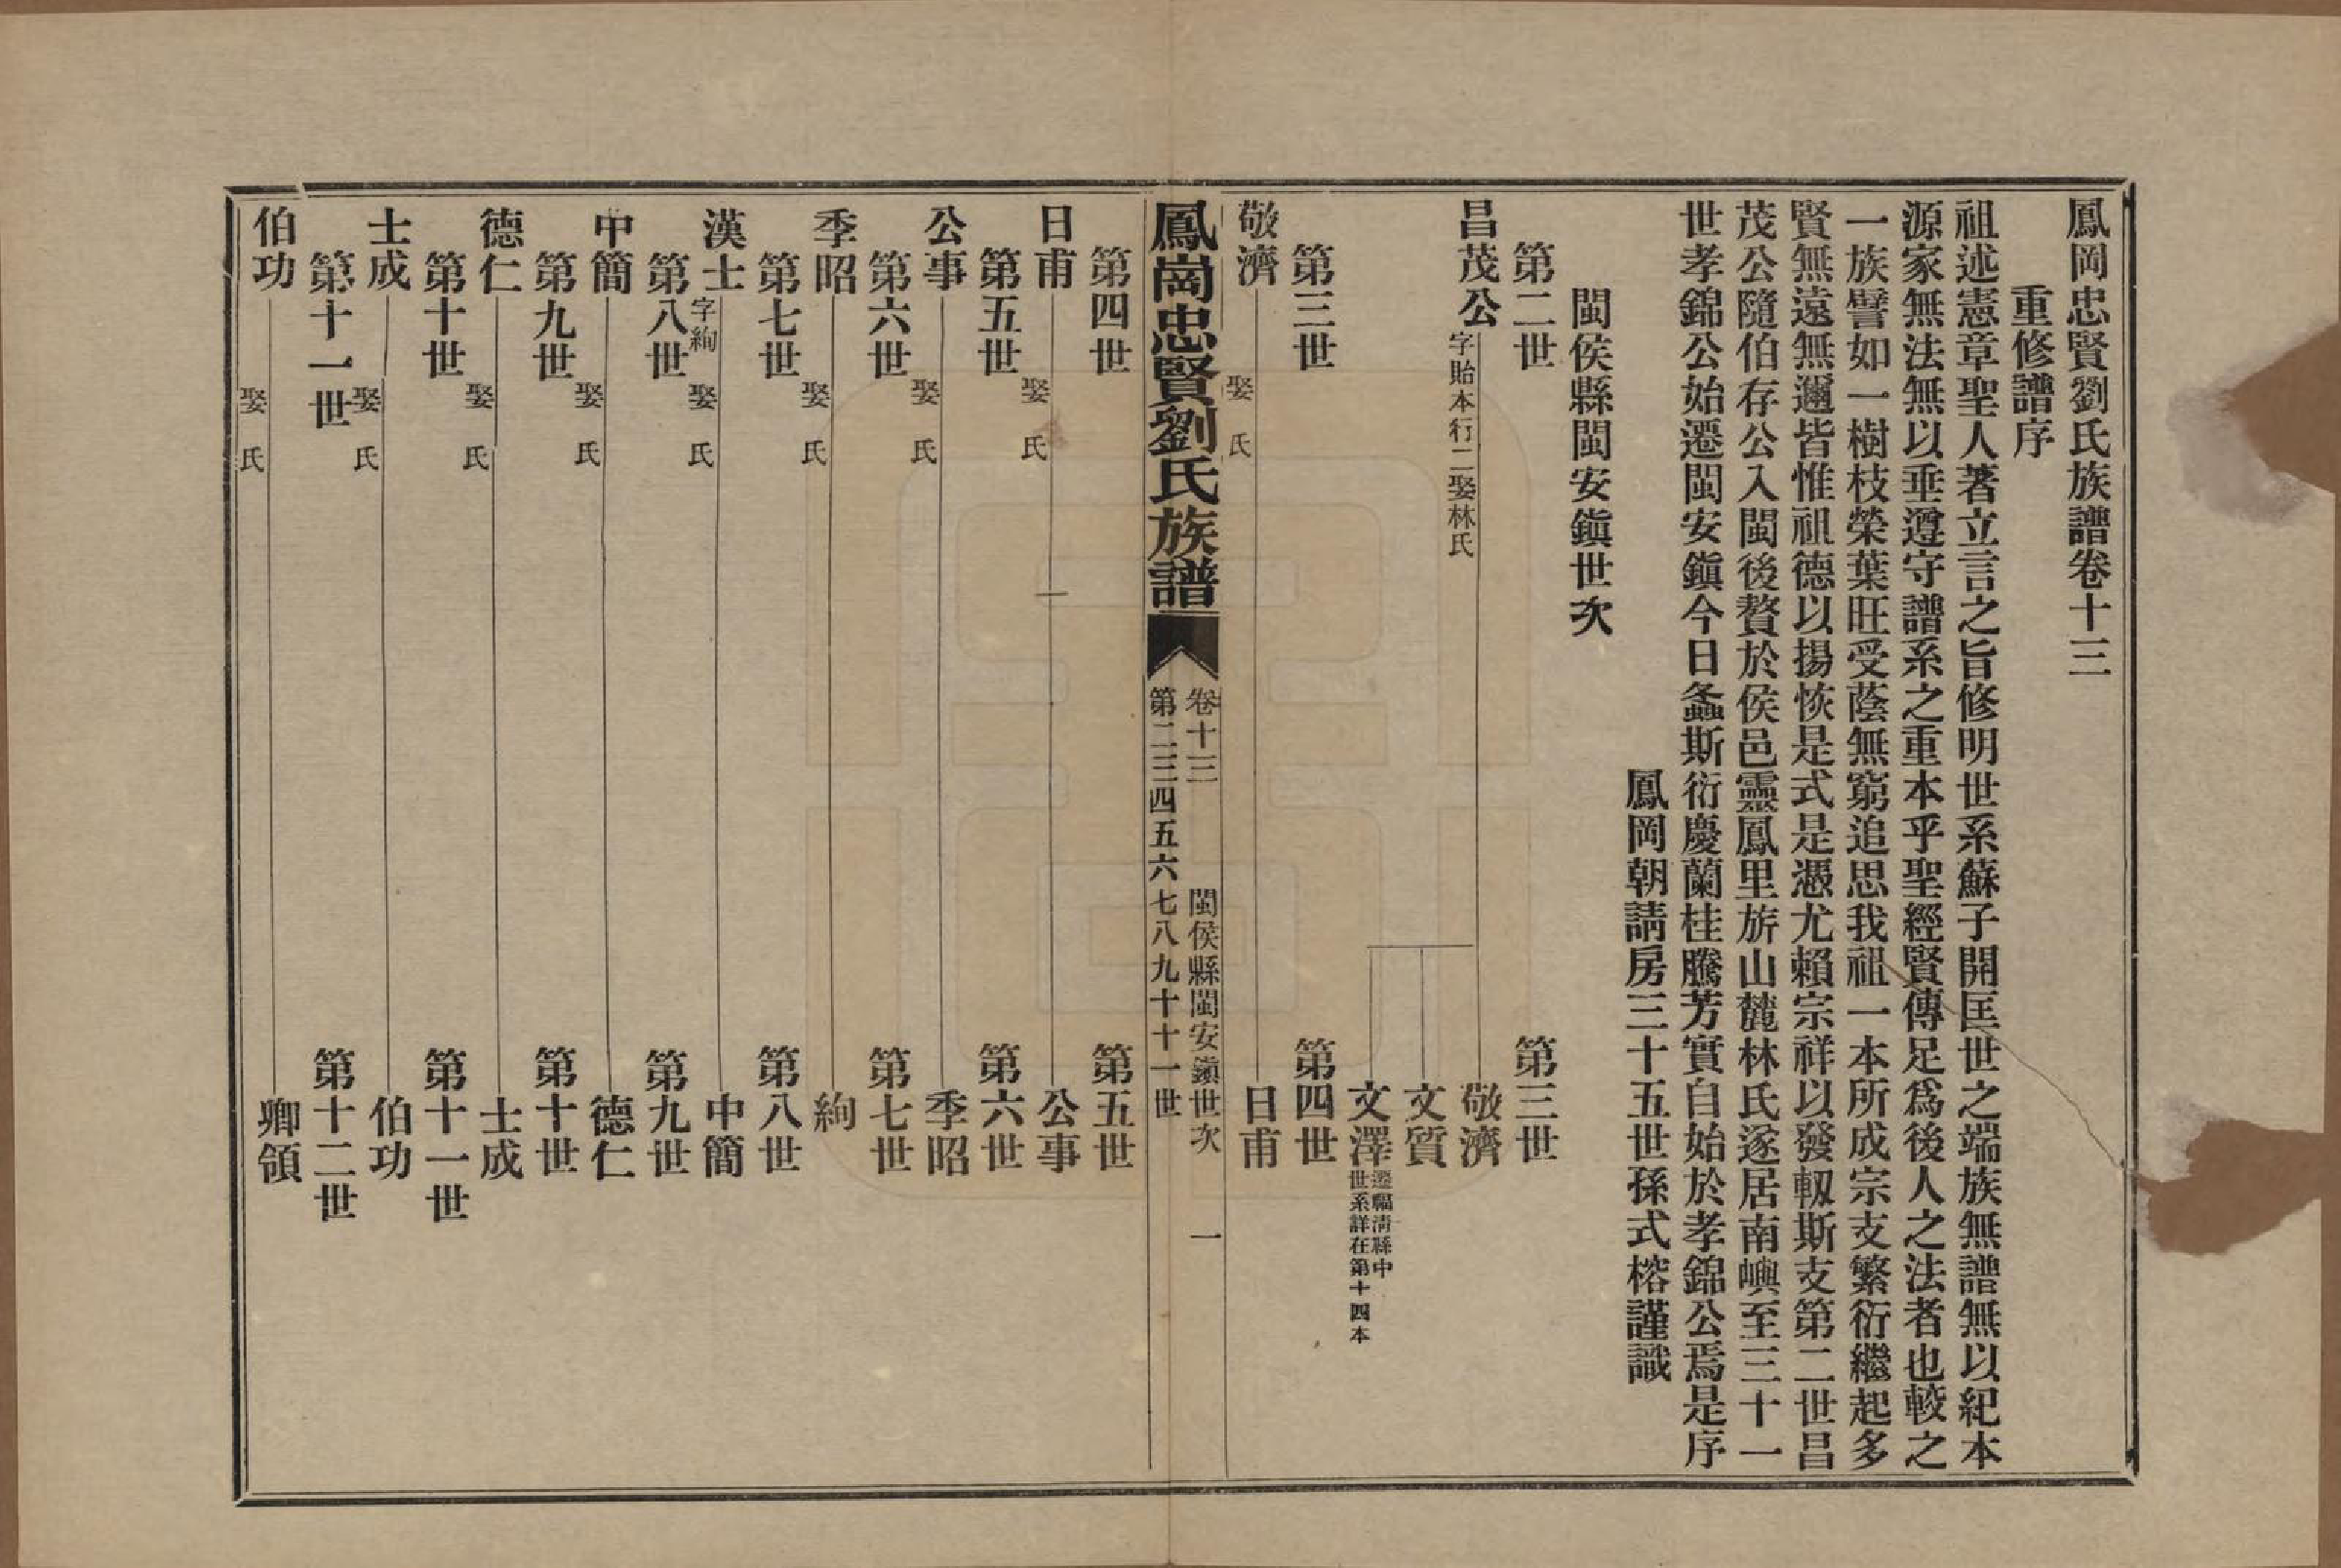 鳳岡忠賢劉氏族譜卷十三
重修譜序
祖述憲章聖人著立言之旨修明世系蘇子開匡世之端族無譜無以紀本
源家無法無以垂遵守譜系之重本乎聖經賢傳足爲後人之法者也較之
一族譬如一樹枝榮葉旺受蔭無窮追思我祖一本所成宗支繁衍繼起多
賢無遠無邇皆惟祖德以揚恢是式是憑尤賴宗祥以發軔斯支第二世昌
茂公隨伯存公入閩後贅於侯邑靈鳳里旂山麓林氏遂居南嶼至三十一
世孝錦公始遷閩安鎭今日螽斯衍慶蘭桂騰芳實自始於孝錦公焉是序
鳳岡朝請房三十五世孫式榕謹識
閩侯縣閩安鎭世次
第二世 第三世
昌茂公 字貽本行二娶林氏 敬濟
文質
文澤 遷福淸縣中
世系詳在第十四本
第三世 第四世
敬濟 娶 氏 日甫
鳳崗忠賢劉氏族譜
卷十三 閩侯縣閩安鎭世次 一
第二三四五六七八九十十一世
第四世 第五世
日甫 娶 氏 公事
第五世 第六世
公事 娶 氏 季昭
第六世 第七世
季昭 娶 氏 絢
第七世 第八世
漢士 字絢 娶 氏 中簡
第八世 第九世
中簡 娶 氏 德仁
第九世 第十世
德仁 娶 氏 士成
第十世 第十一世
士成 娶 氏 伯功
第十一世 第十二世
伯功 娶 氏 卿領